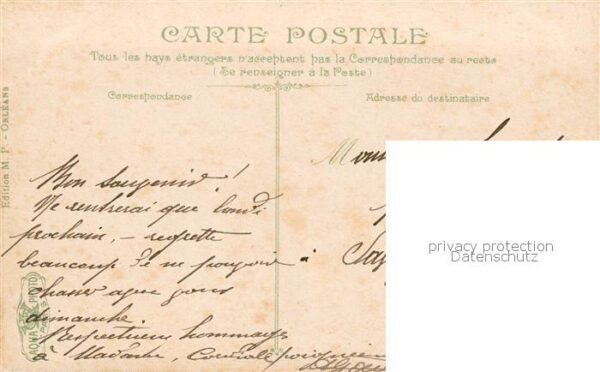 CARTE POSTALE
Tous les pays étrangers n'acceptent pas la Correspondance au recto
(Se renseigner à la Poste)
Correspondance
Adresse du destinataire
Edition M. P. - ORLÉANS
Bon souvenir!
Ne rentrerai que lundi
prochain, - regrette
beaucoup de ne pouvoir
chasser avec vous
dimanche.
Respectueux hommages
à Madame, Cordiale poignée
à
NOVA PHOTO
privacy protection
Datenschutz